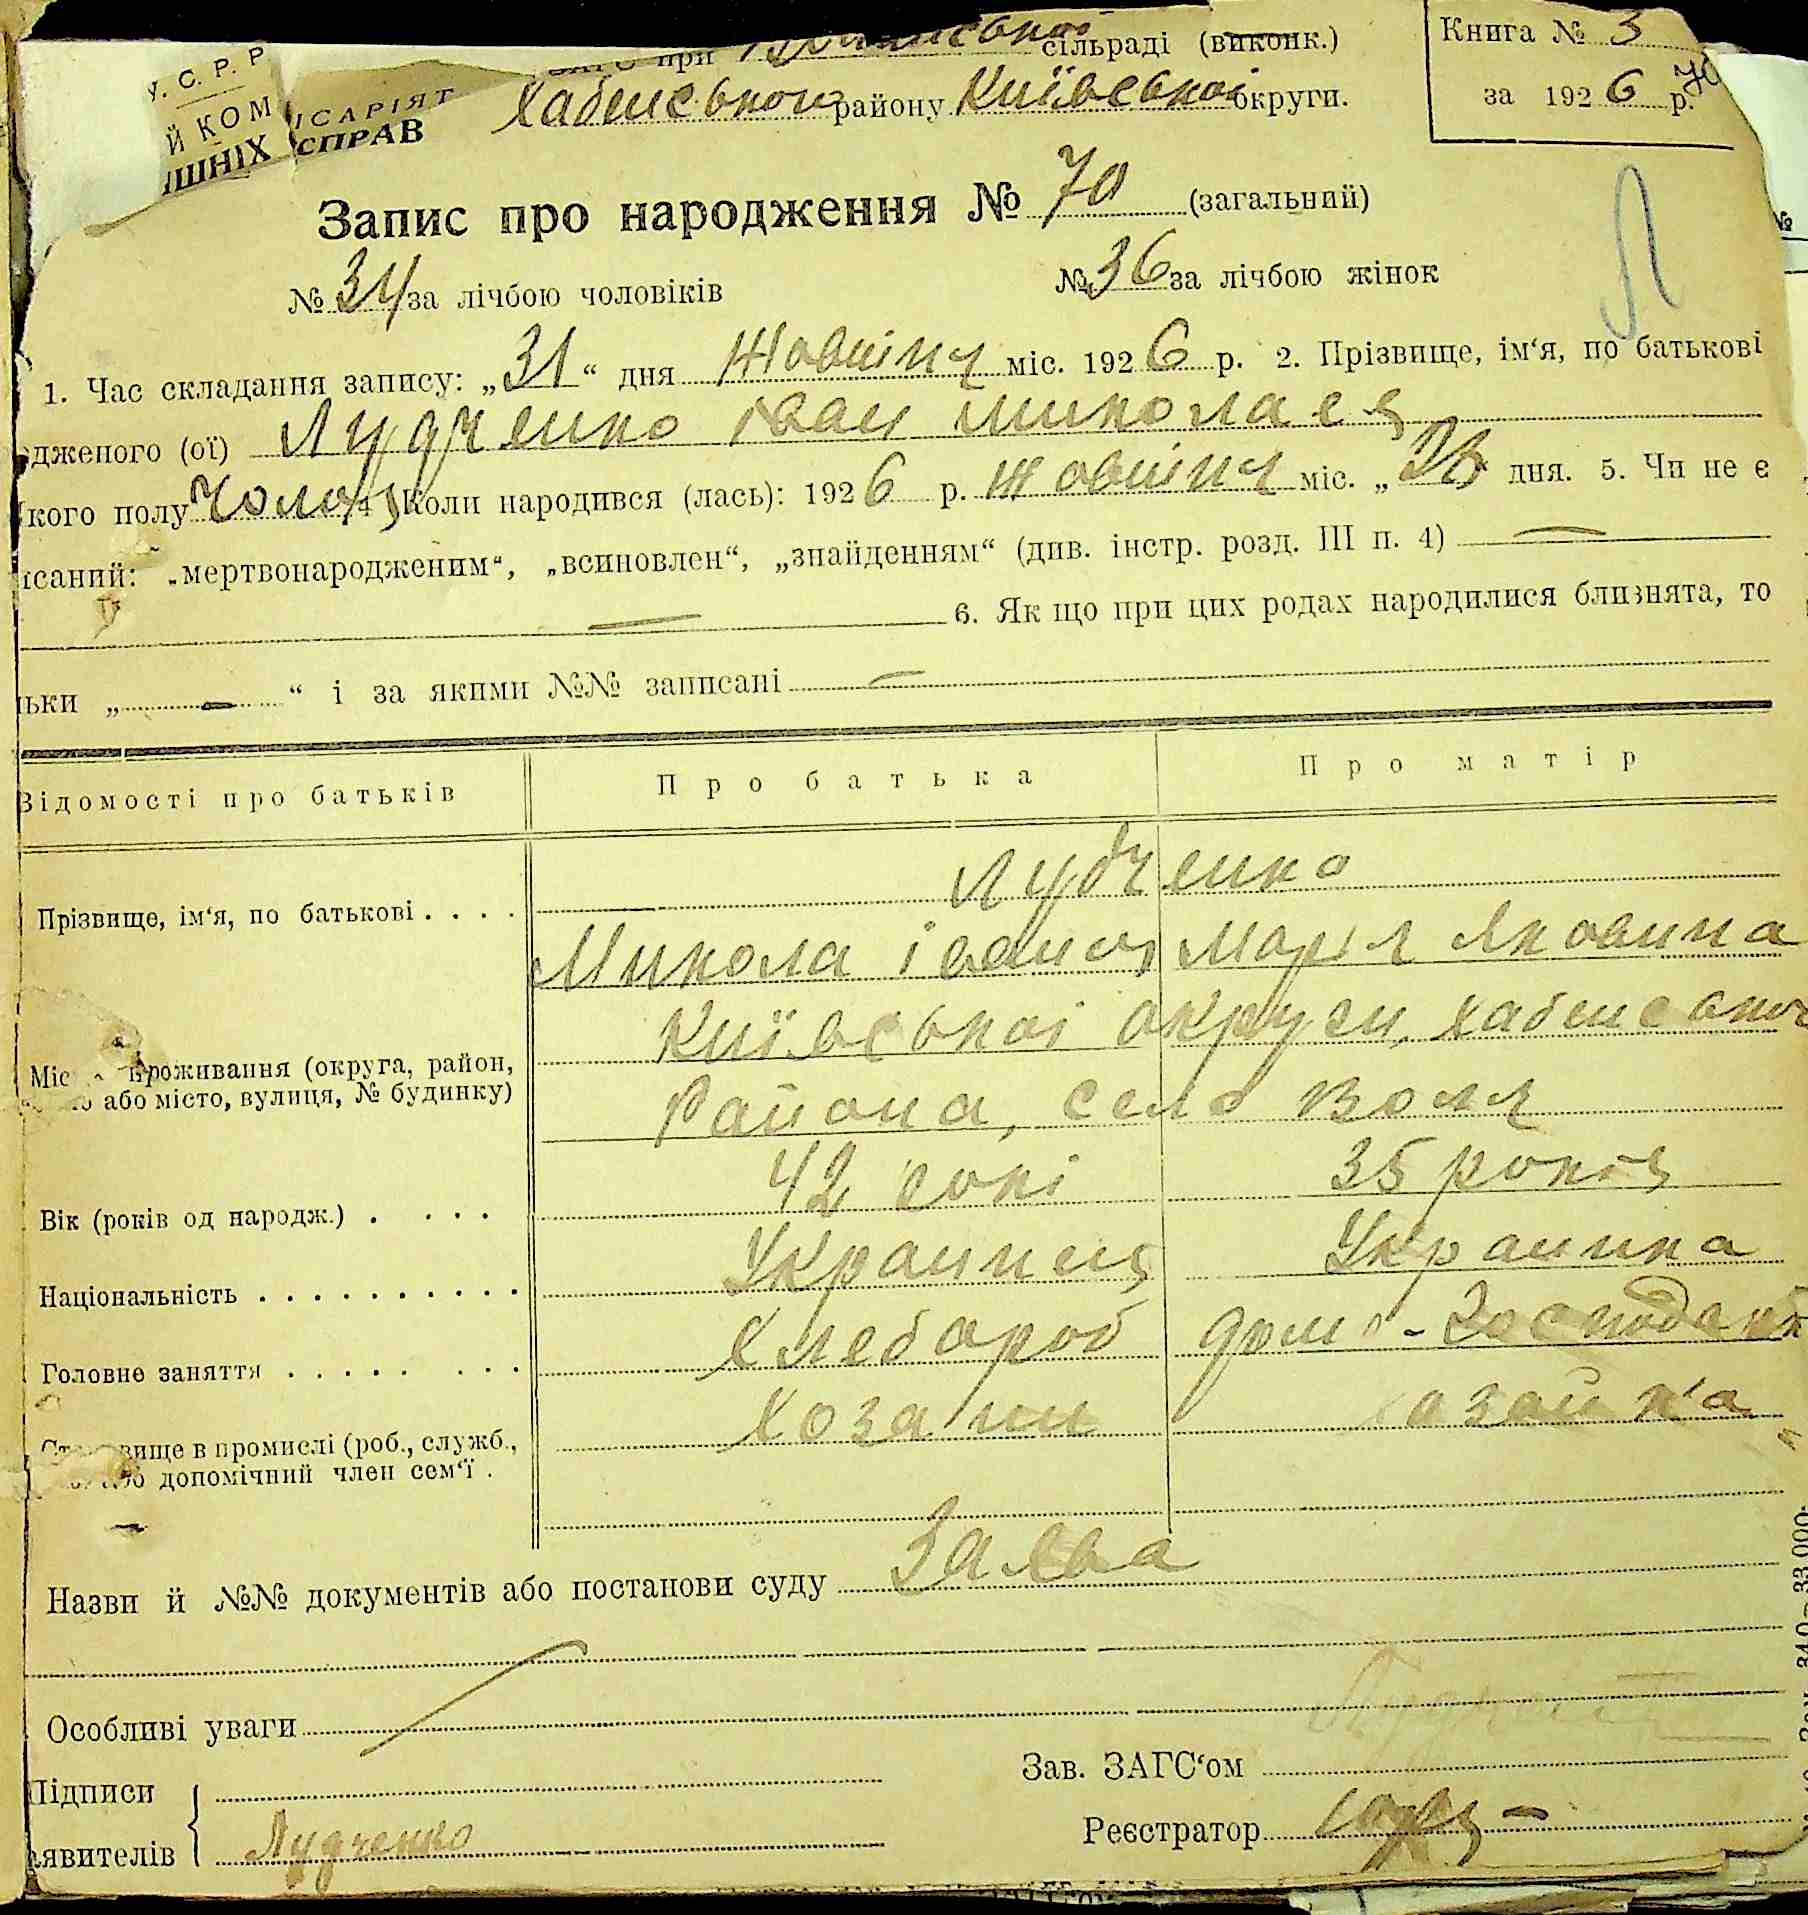 У. С. Р. Р
Й КОМ ІСАРІЯТ
ШНІХ СПРАВ
при сільраді (виконк.)
Хабенського району Київськоі округи.
Книга № 3
за 1926 р.
70
Запис про народження № 70 (загальний)
№ 34 за лічбою чоловіків № 36 за лічбою жінок
1. Час складання запису: „31“ дня Жовтня міс. 1926 р. 2. Прізвище, ім‘я, по батькові
дженого (ої) Лудченко іван миколаев
кого полу Чолов 4 Коли народився (лась): 1926 р. Жовтня міс. „ дня. 5. Чи не є
исаний: „мертвонародженим“, „всиновлен“, „знайденням“ (див. інстр. розд. III п. 4) —
— 6. Як що при цих родах народилися близнята, то
льки „ — “ і за якими №№ записані —
Відомості про батьків Про батька Про матір
Лудченко
Прізвище, ім‘я, по батькові . . . .
Микола іванов Марія Яковина
Київськоі округи, Хабенського
Міс проживання (округа, район,
або місто, вулиця, № будинку)
Района, село Воля
Вік (років од народж.) . . . . 42 роки 35 років
Національність . . . . . . . . . . Украинец Украинка
Головне заняття . . . . . . . . Хлебороб домо-господарк
Ст вище в промислі (роб., служб.,
або допомічний член сем‘ї .
Хозаин озайка
Назви й №№ документів або постанови суду Заява
Особливі уваги
Підписи
явителів Лудченко
Зав. ЗАГС‘ом
Реєстратор
340—33.000.